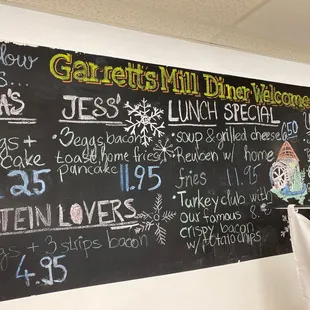 Garrett's Mill Diner Welcomes
low
S...
A'S
gs +
cake
25
JESS'
3 eggs bacon
toast home fries
pancake 11.95
TEIN LOVERS
gs + 3 strips bacon
4.95
LUNCH SPECIAL
• soup & grilled cheese 6.50
• Reuben w/ home
fries 11.95
• Turkey club with
our famous
crispy bacon
w/ potato chips